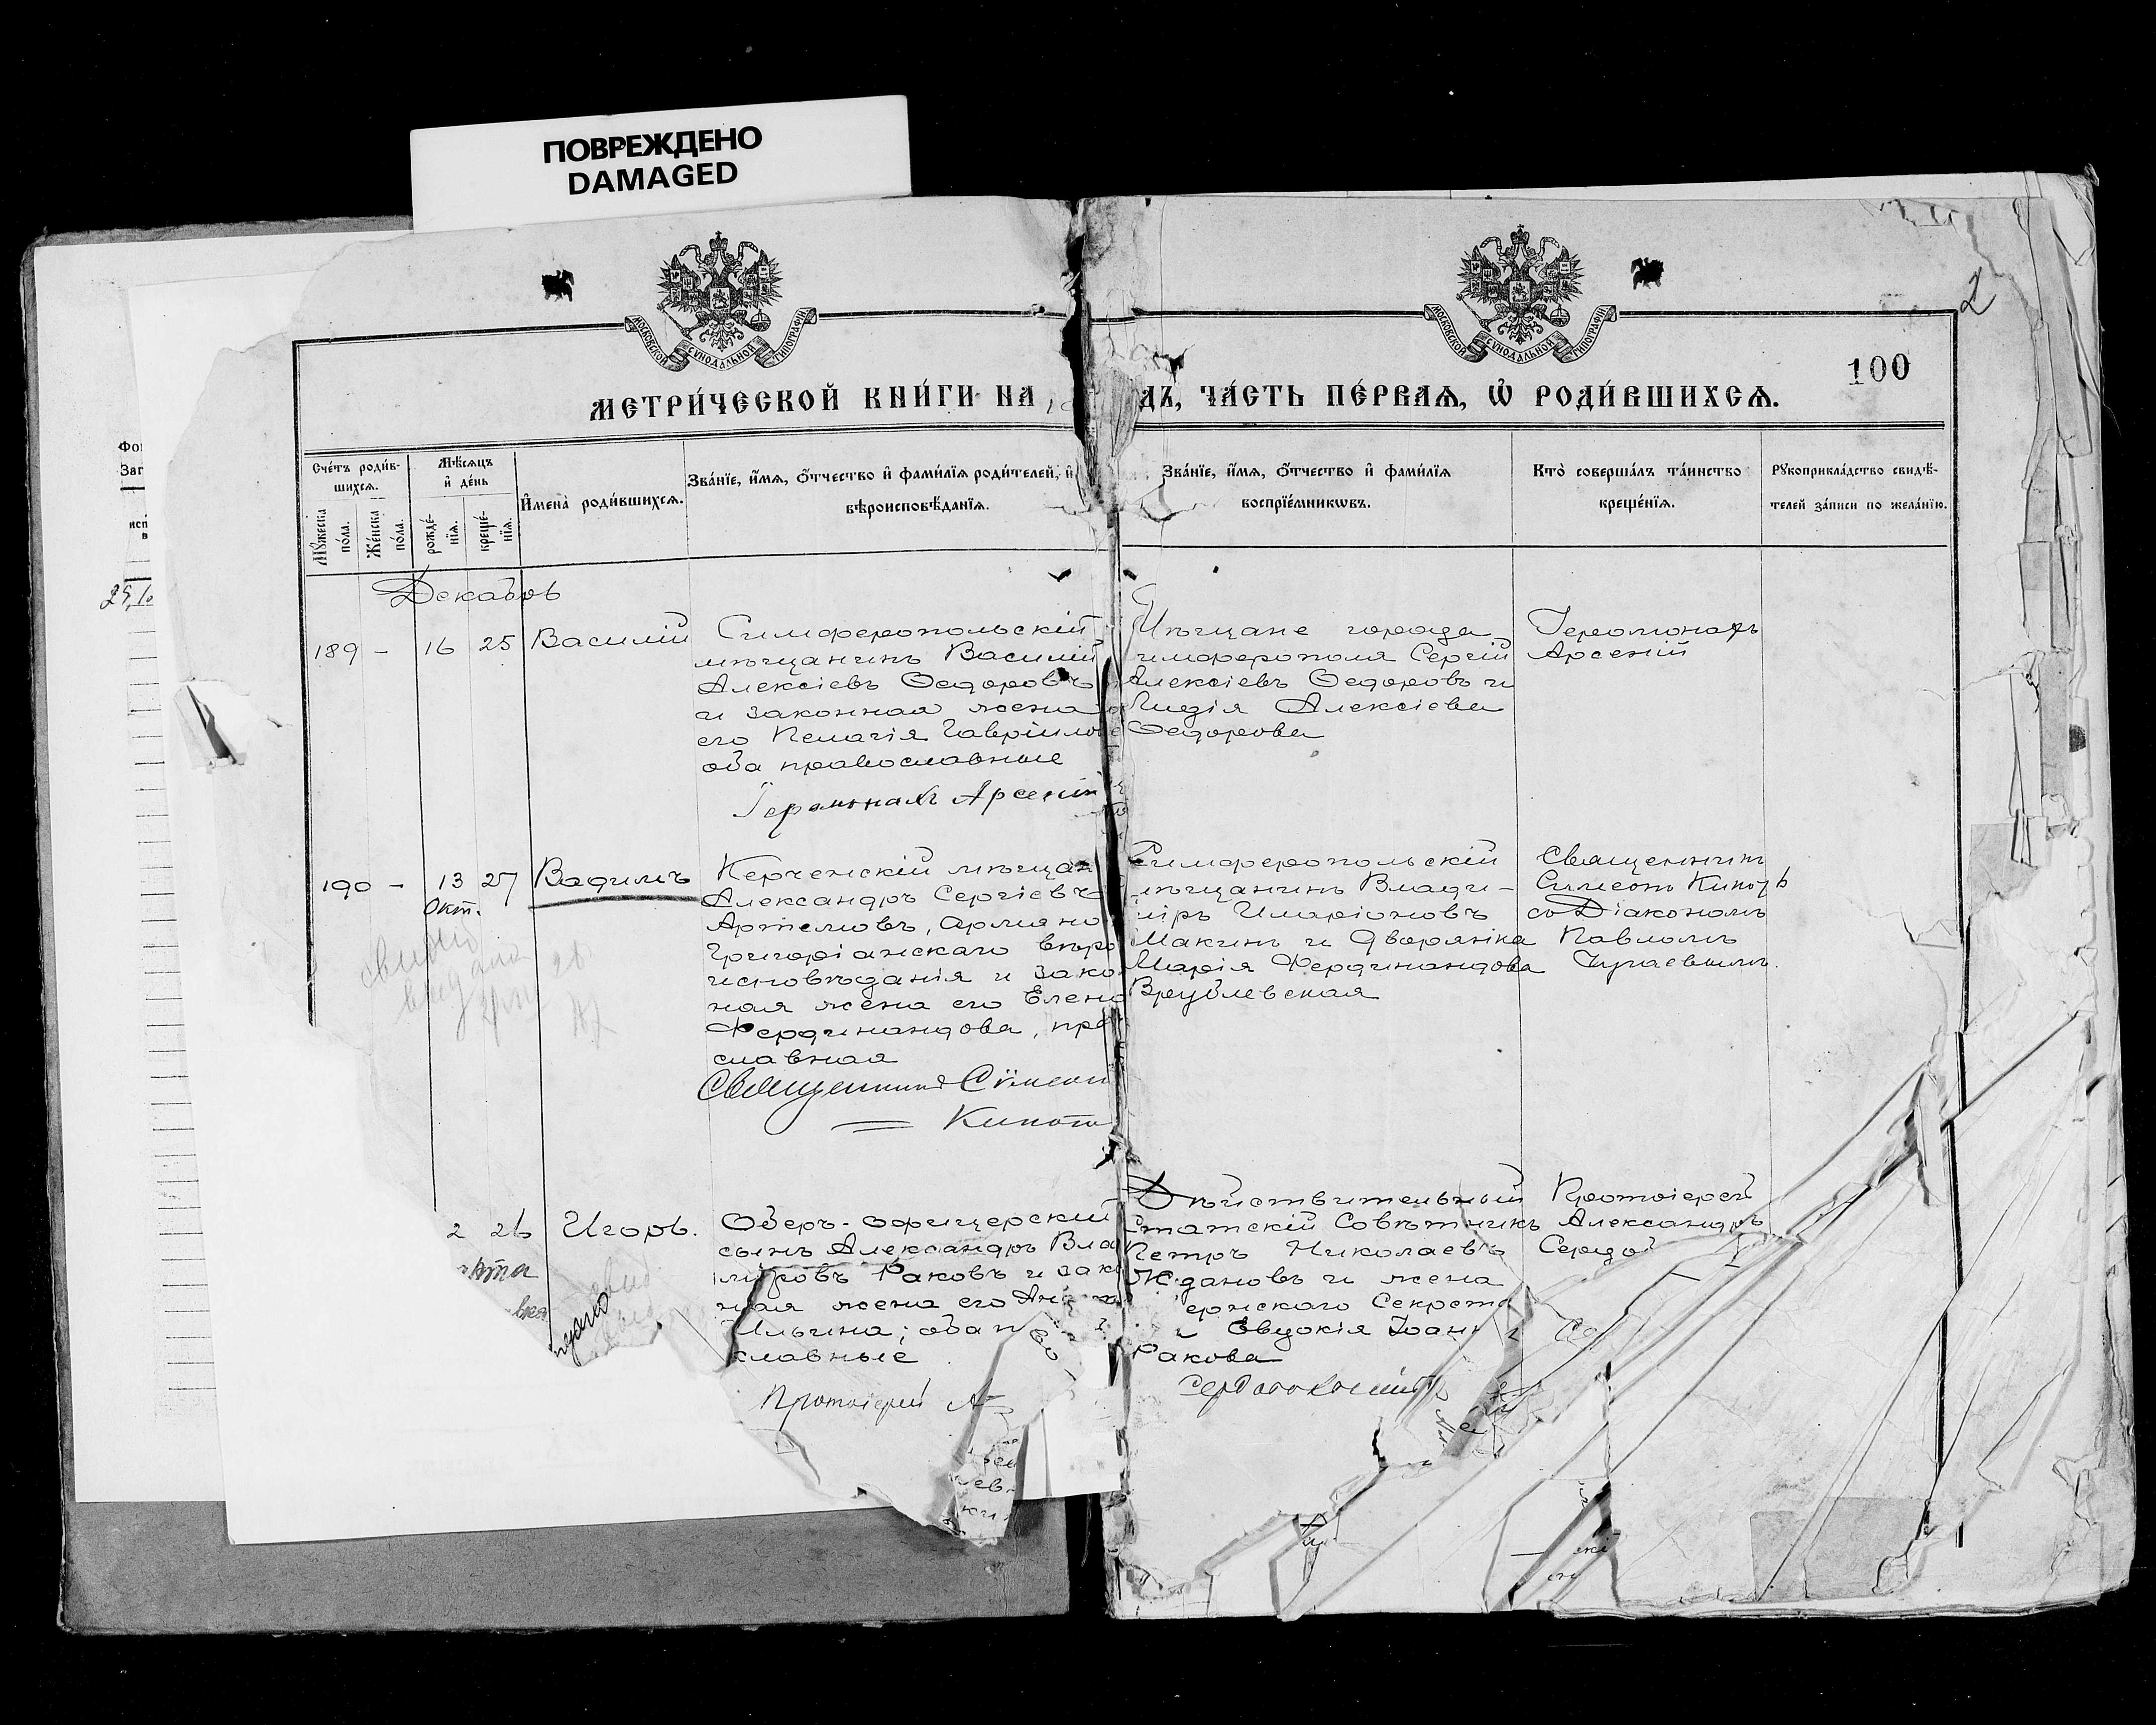 ПОВРЕЖДЕНО
DAMAGED
МОСКОВСКОЙ СѴНОДАЛЬНОЙ ТИПОГРАФІИ
МОСКОВСКОЙ СѴНОДАЛЬНОЙ ТИПОГРАФІИ
2
100
МЕТРИ́ЧЕСКОЙ КНИ́ГИ НА
ДЪ, ЧА́СТЬ ПЕ́РВАѦ, Ѡ҆ РОДИ́ВШИХСѦ.
Сче́тъ роди́в-
шихсѧ.
Мꙋ́жеска по́ла.
Же́нска по́ла.
Мѣ́сѧцъ
и҆ де́нь
рожде́-
нїѧ.
креще́-
нїѧ.
И҆мена̀ роди́вшихсѧ.
Зва́нїе, и҆́мѧ, ѻ҆́тчество и҆ фами́лїѧ роди́телей, и҆
вѣроисповѣ́данїѧ.
Зва́нїе, и҆́мѧ, ѻ҆́тчество и҆ фами́лїѧ
воспрїе́мникѡвъ.
Кто̀ соверша́лъ та́инство
креще́нїѧ.
Рꙋкоприкла́дство свидѣ́-
телей за́писи по жела́нїю.
Декабрь
189 - 16 25 Василій
Симферопольскій
мѣщанинъ Василій
Алексіевъ Ѳедоровъ
и законная жена
его Пелагія Гаврилов
оба православные
Іеромонахъ Арсеній
Мѣщане города
имферополя Сергій
Алексіевъ Ѳедоровъ и
Лидія Алексіева
Ѳедорова
Іеромонахъ
Арсеній
190 - 13 27 Вадимъ
Окт.
Керченскій мѣщан
Александръ Сергіевъ
Артемовъ, Армяно
Григоріанскаго вѣро
исповѣданія и зако
ная жена его Елена
Фердинандова, пра
славная
Священникъ Сѵмеон
Кипот
Симферопольскій
мѣщанинъ Влади-
міръ Иларіоновъ
Макинъ и дворянка
Марія Фердинандова
Врублевская
Священникъ
Сѵмеонъ
со Діакономъ
Павломъ
2 26 Игорь.
Оберъ-офицерскій
сынъ Александръ Вла
міровъ Раковъ и зак
ная жена его Ан
Ильина; оба п
славные
Протоіерей А
Дѣйствительный
Статскій Совѣтникъ
Петръ Николаевъ
Ждановъ и жена
ернскаго Секрета
Евдокія Іоан
Ракова
Протоіерей
Александръ
Сердо